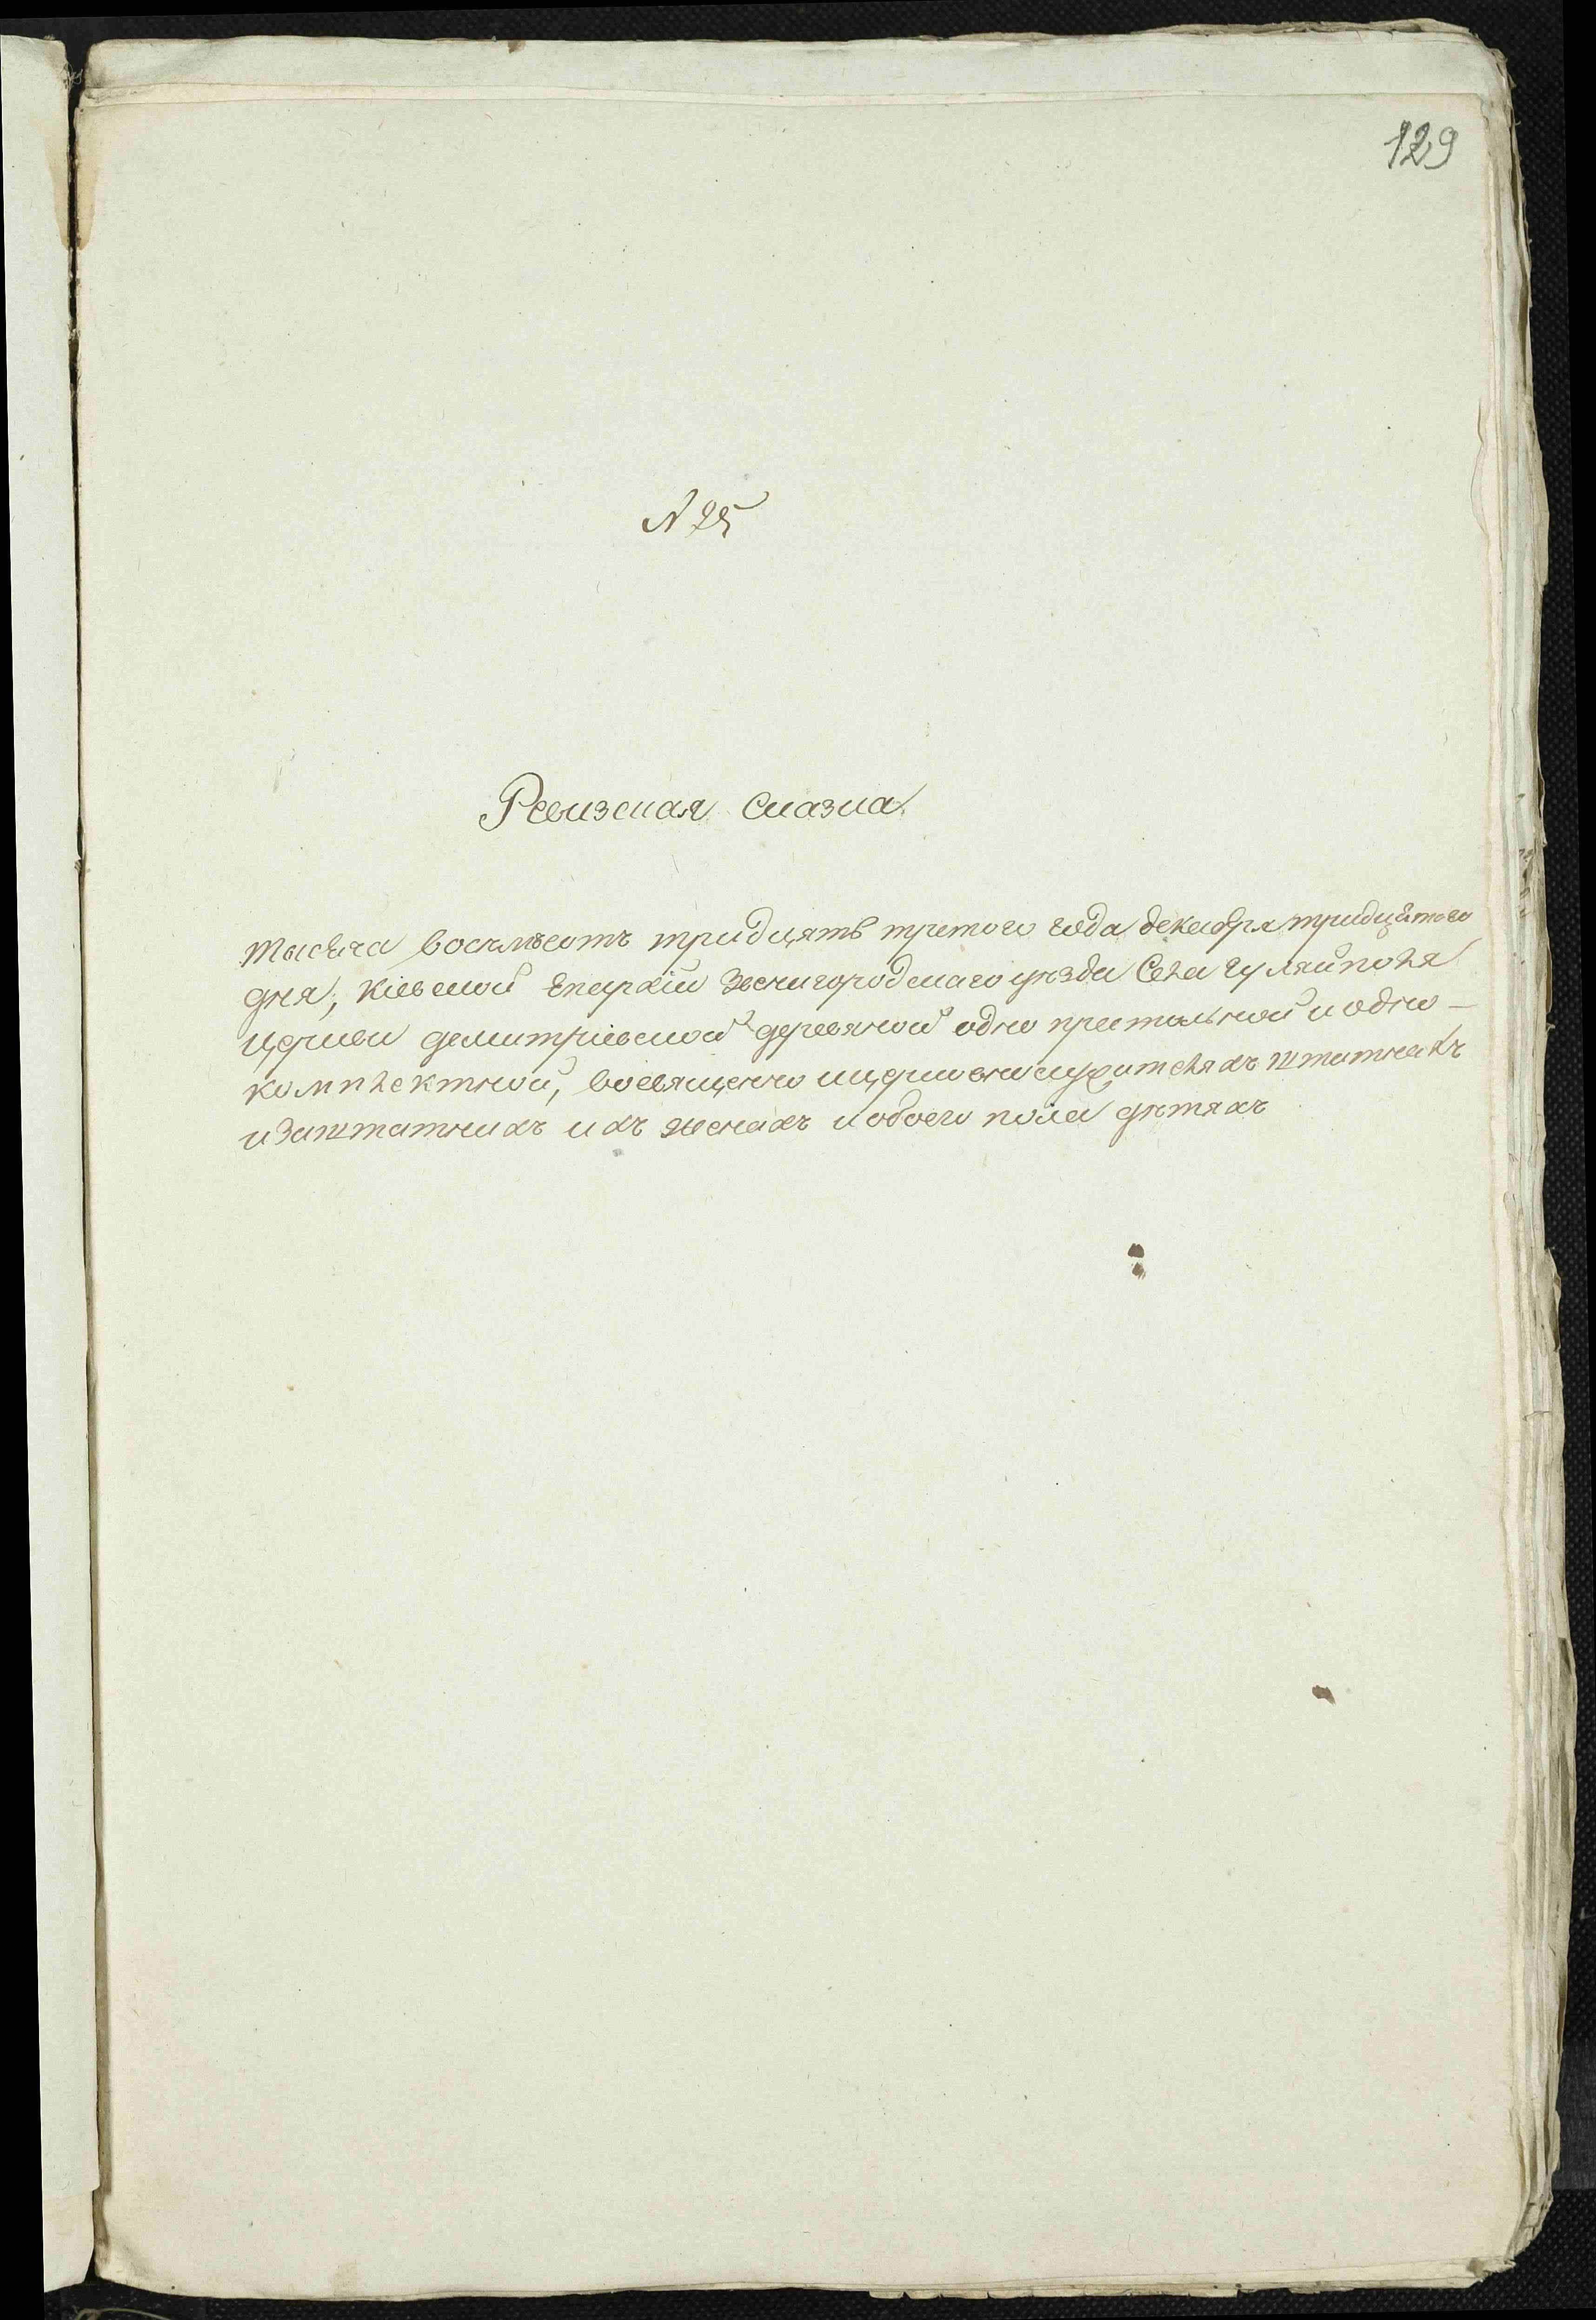 129
N 25
Ревизская сказка
тысяча восъмъсотъ тридцять третого года декабря тридцятого
дня, Кіевской Епархіи Звенигородскаго уѣзда Села Гуляйполя
церкви Демитріевской деревяной одно престольной и одно-
комплектной, о священно ицерковнослужителяхъ штатныхъ
изаштатныхъ ихъ женахъ иобоего пола дѣтяхъ